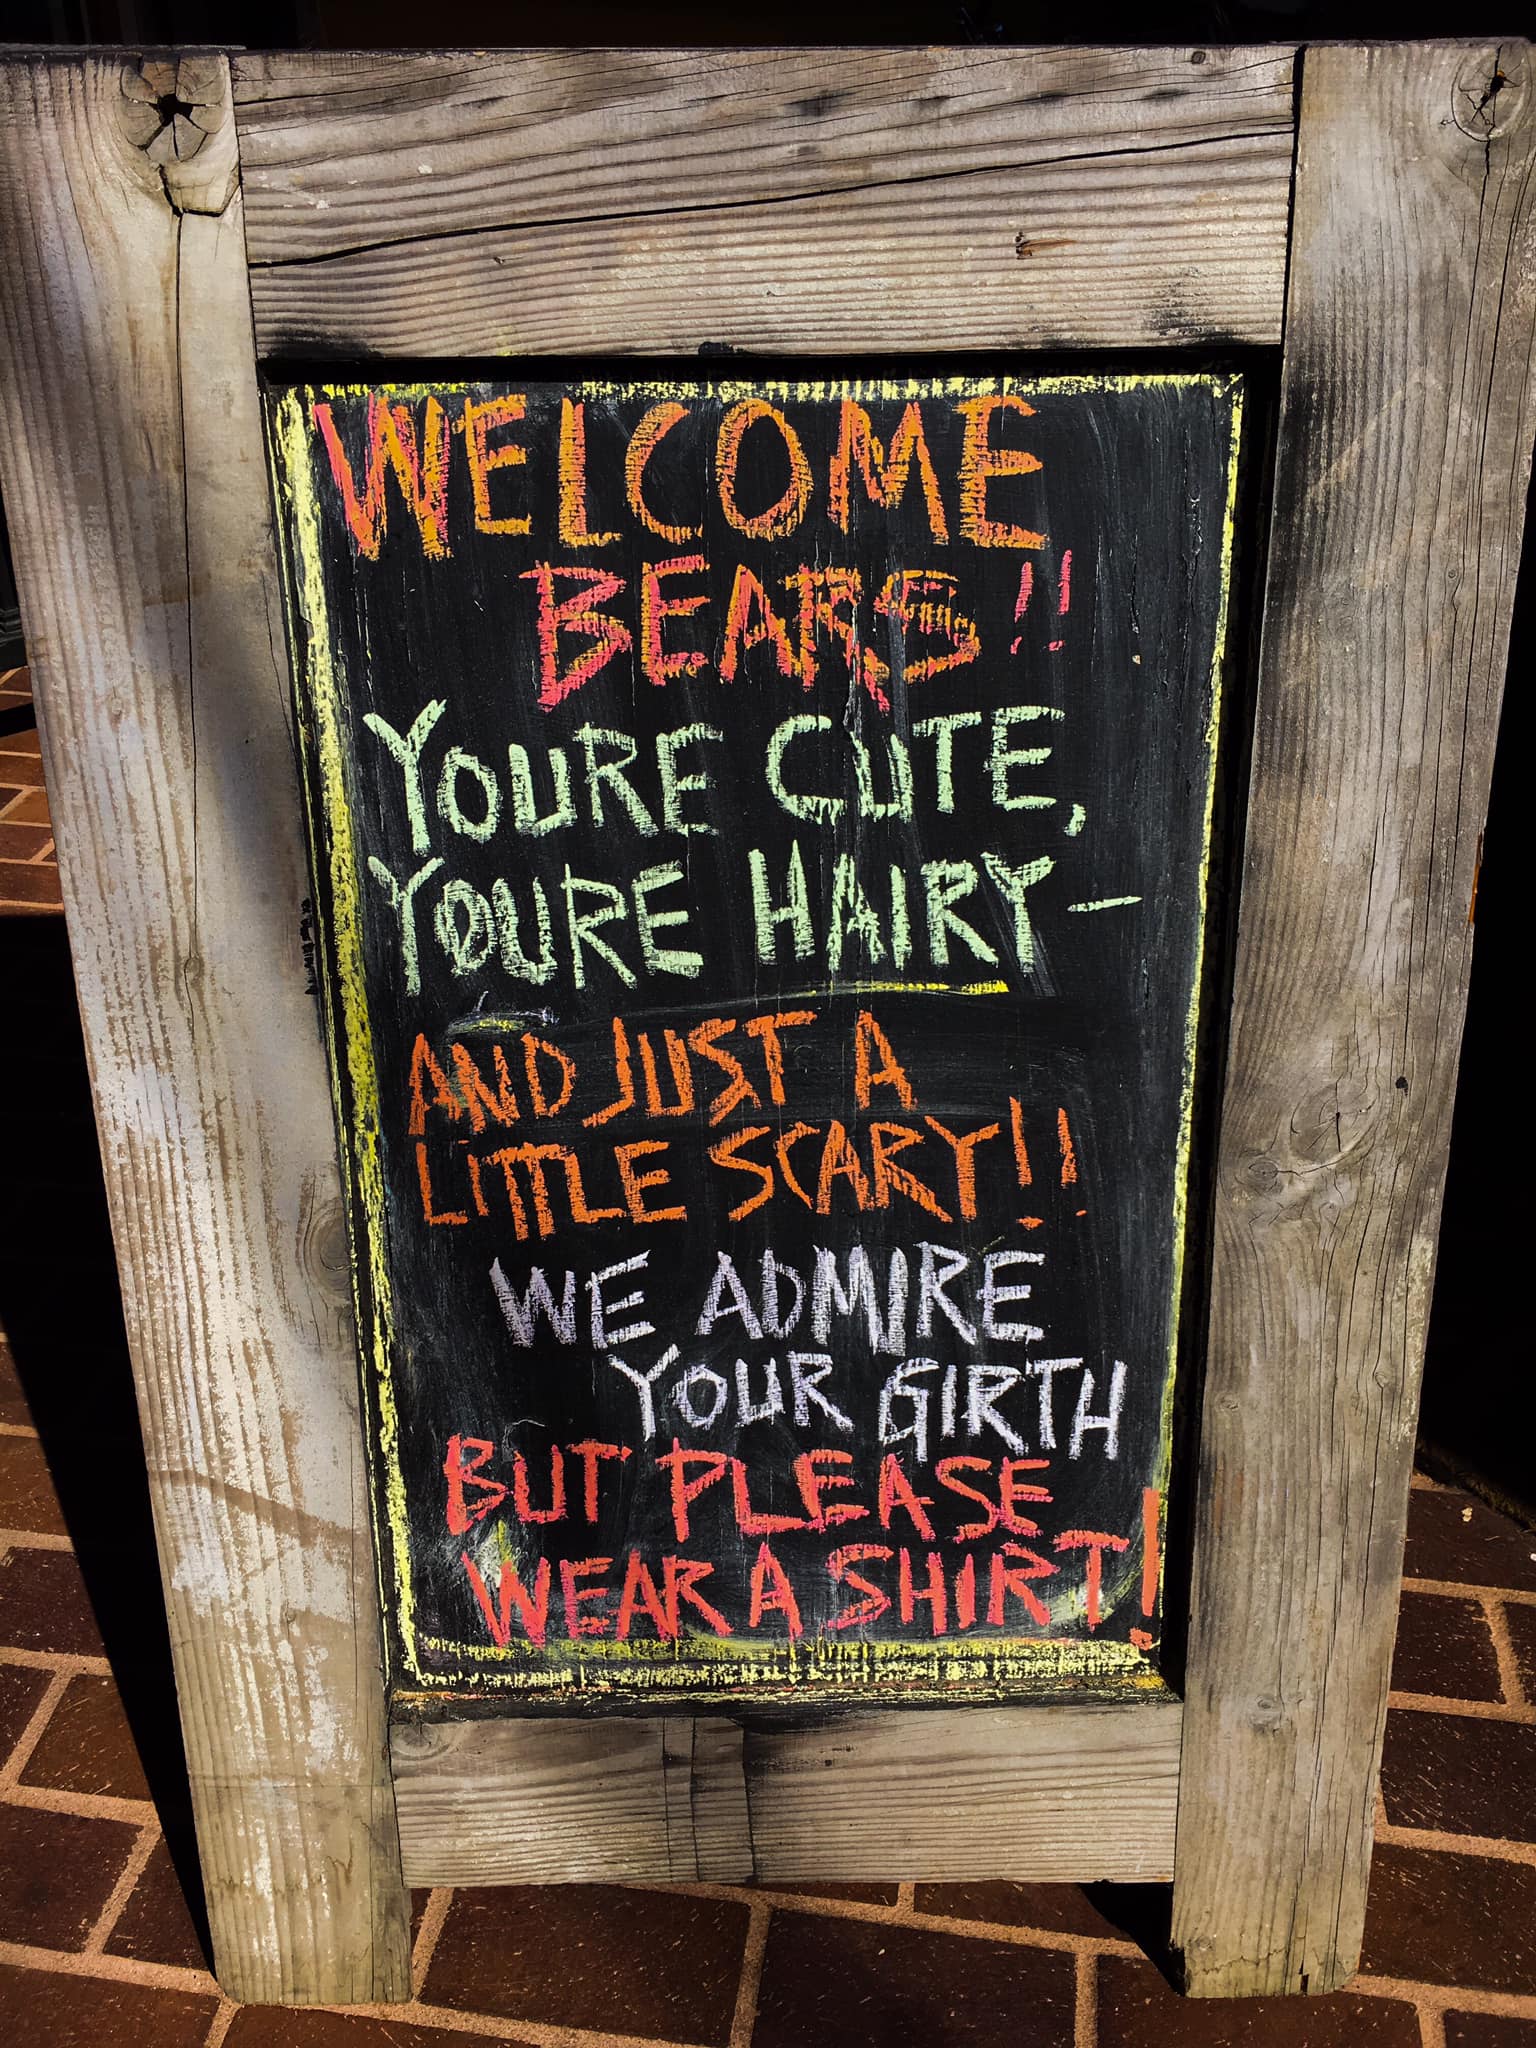 WELCOME
BEARS!!
YOURE CUTE,
YOURE HAIRY—
AND JUST A
LITTLE SCARY!!
WE ADMIRE
YOUR GIRTH
BUT PLEASE
WEAR A SHIRT!